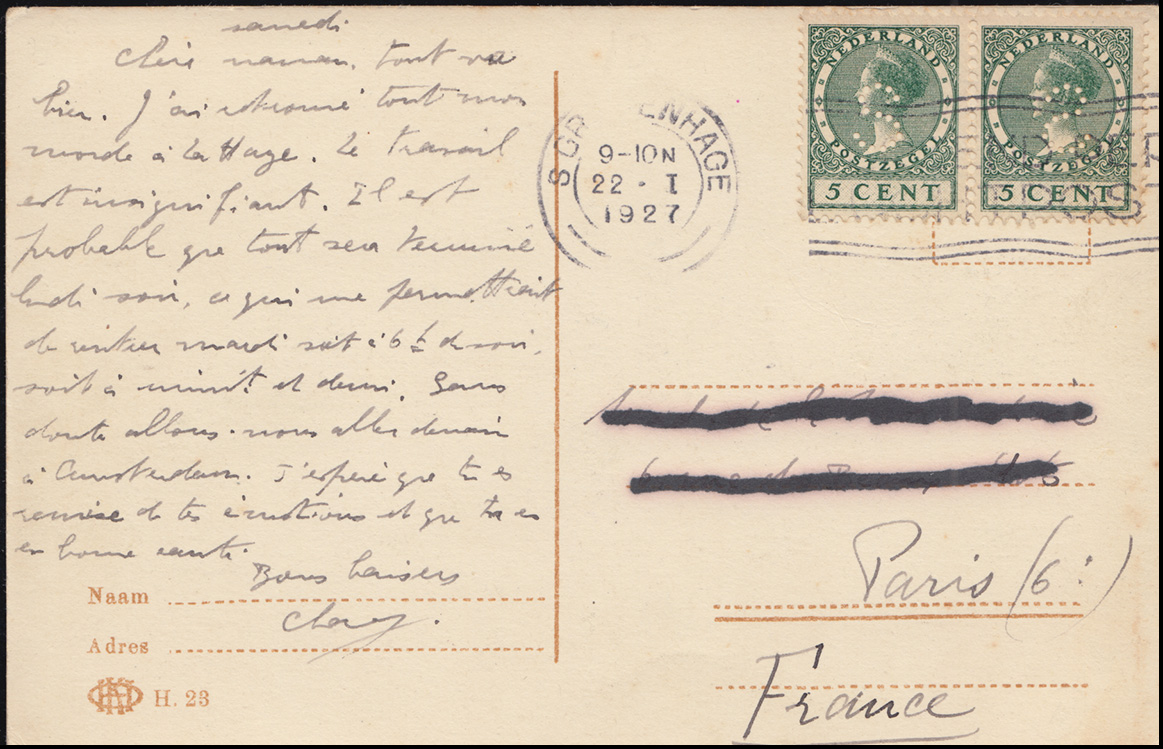 samedi
Chère maman. tout va
bien. J'ai retrouvé tout mon
monde à La Haye. Le travail
est insignifiant. Il est
probable que tout sera terminé
lundi soir, ce qui me permettrait
de rentrer mardi soit à 6 h du soir,
soit à minuit et demi. Sans
doute allons-nous aller demain
à Amsterdam. J'espère que tu es
remise de tes émotions et que tu es
en bonne santé.
Bons baisers
Naam
Adres
H. 23
S GRA ENHAGE
9-10N
22 · I
1927
NEDERLAND
POSTZEGEL
5 CENT
NEDERLAND
POSTZEGEL
5 CENT
Paris (6e)
France